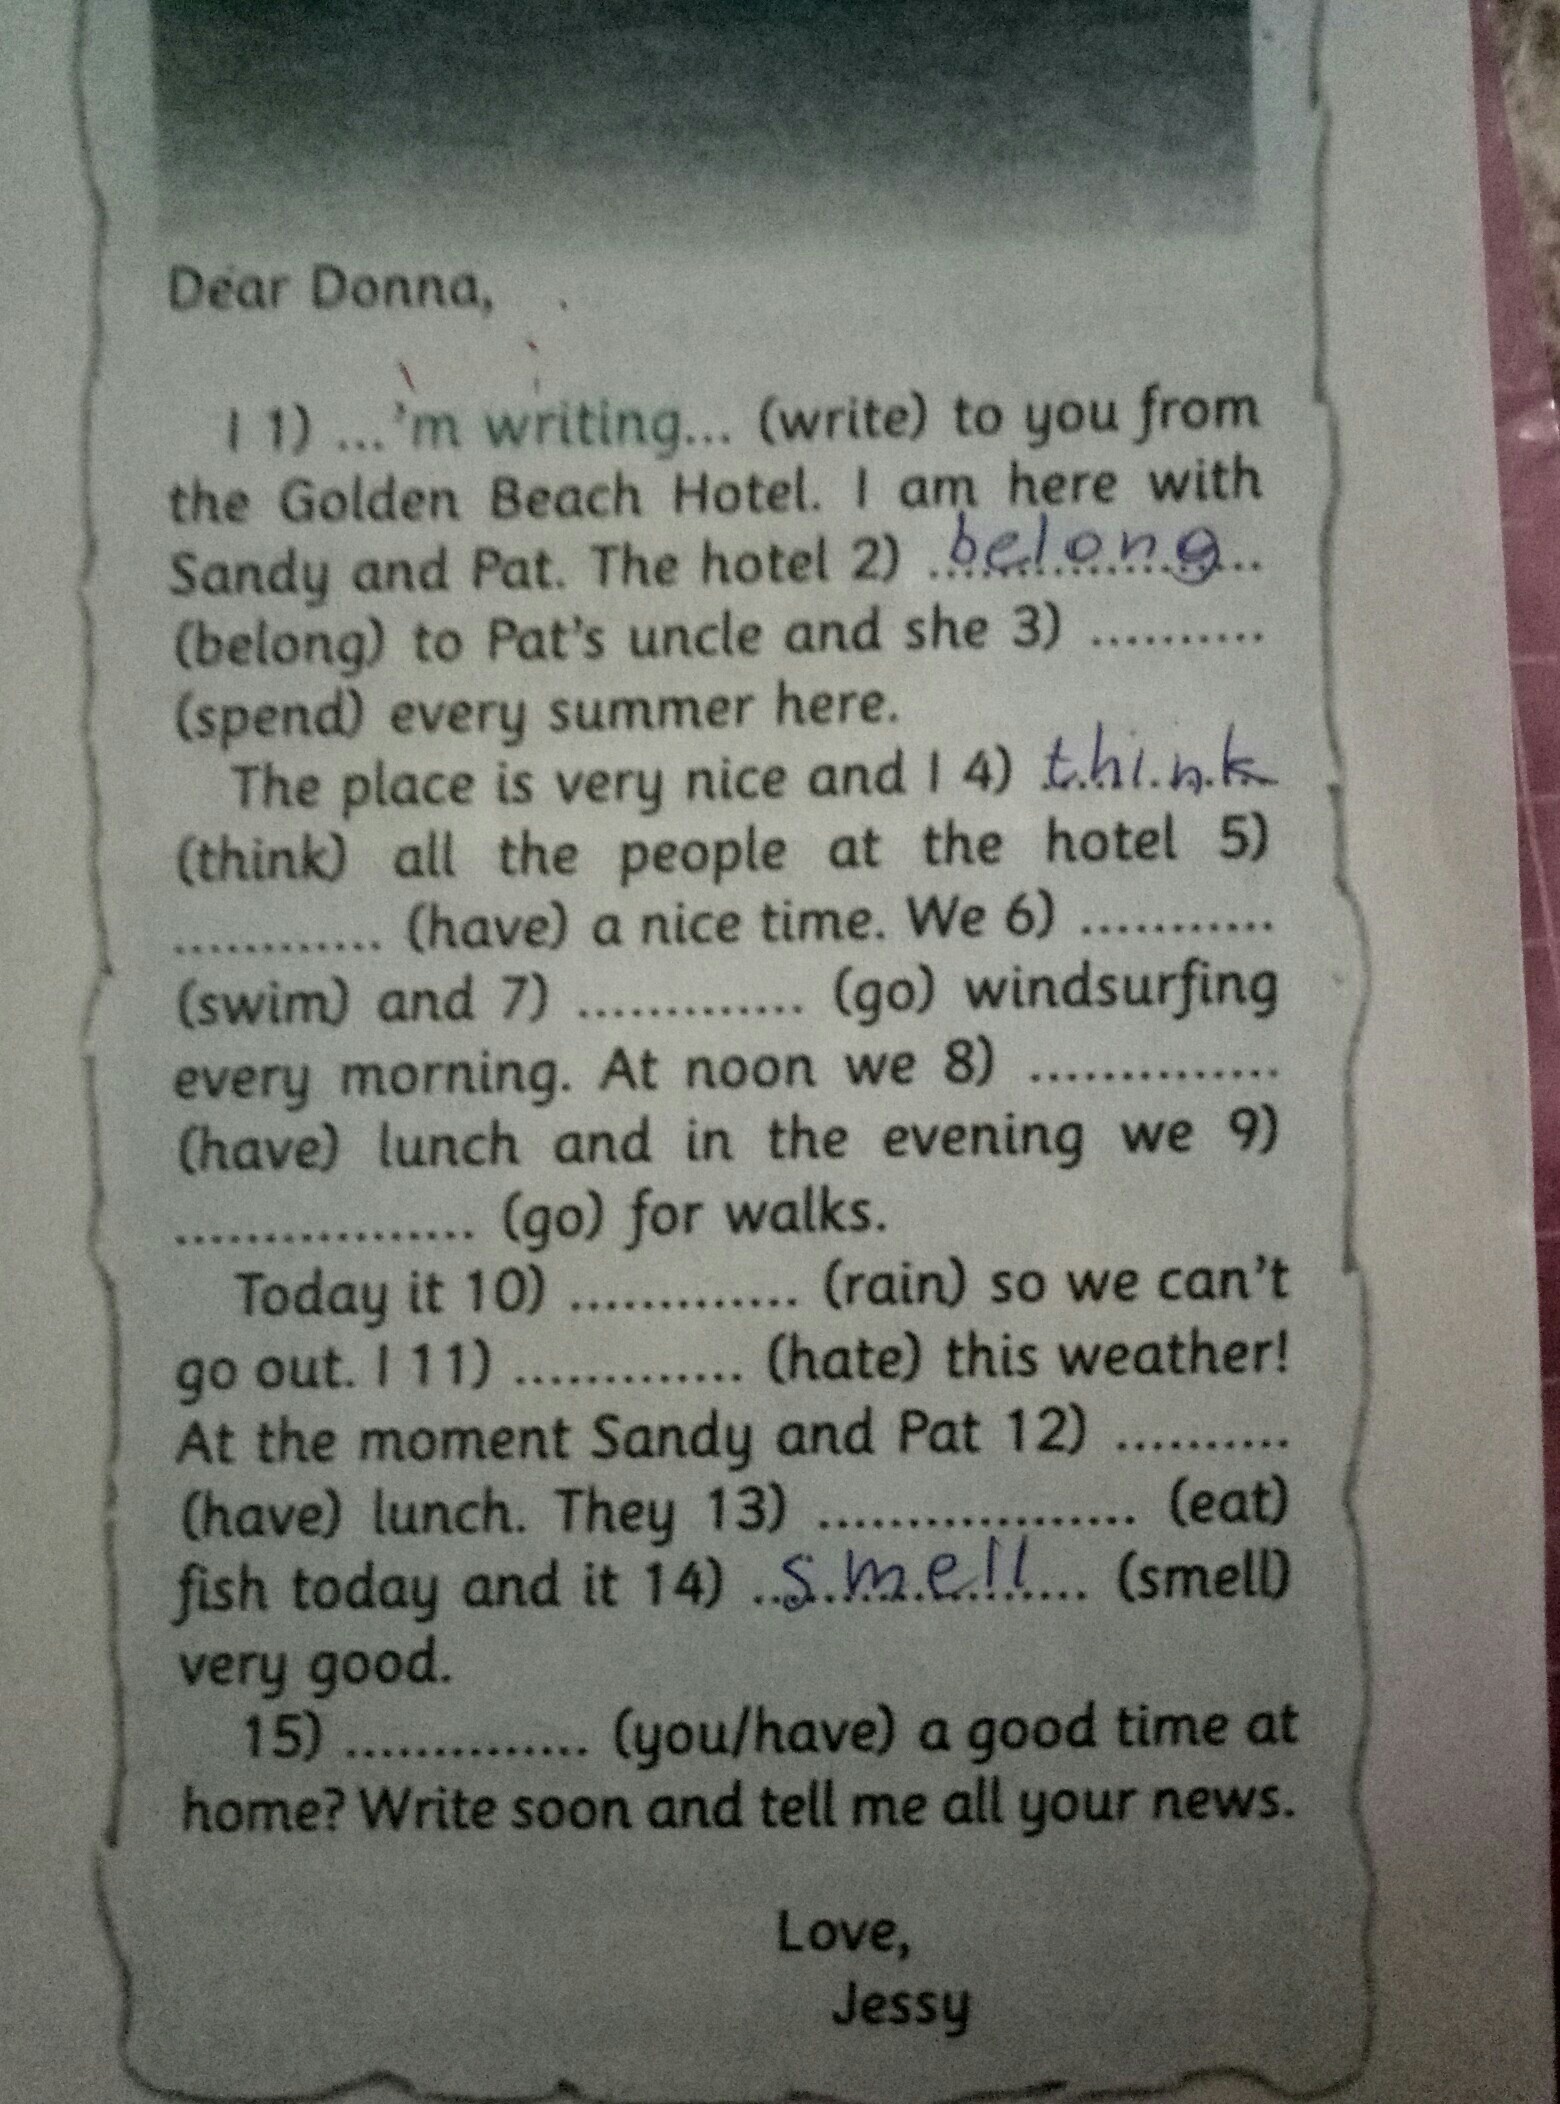 Dear Donna,
I 1) ...'m writing... (write) to you from
the Golden Beach Hotel. I am here with
Sandy and Pat. The hotel 2) belong
(belong) to Pat's uncle and she 3) ..........
(spend) every summer here.
The place is very nice and I 4) think
(think) all the people at the hotel 5)
............ (have) a nice time. We 6) ...........
(swim) and 7) ............. (go) windsurfing
every morning. At noon we 8) ..............
(have) lunch and in the evening we 9)
................. (go) for walks.
Today it 10) ............. (rain) so we can't
go out. I 11) ............. (hate) this weather!
At the moment Sandy and Pat 12) ..........
(have) lunch. They 13) .................. (eat)
fish today and it 14) smell (smell)
very good.
15) .............. (you/have) a good time at
home? Write soon and tell me all your news.
Love,
Jessy